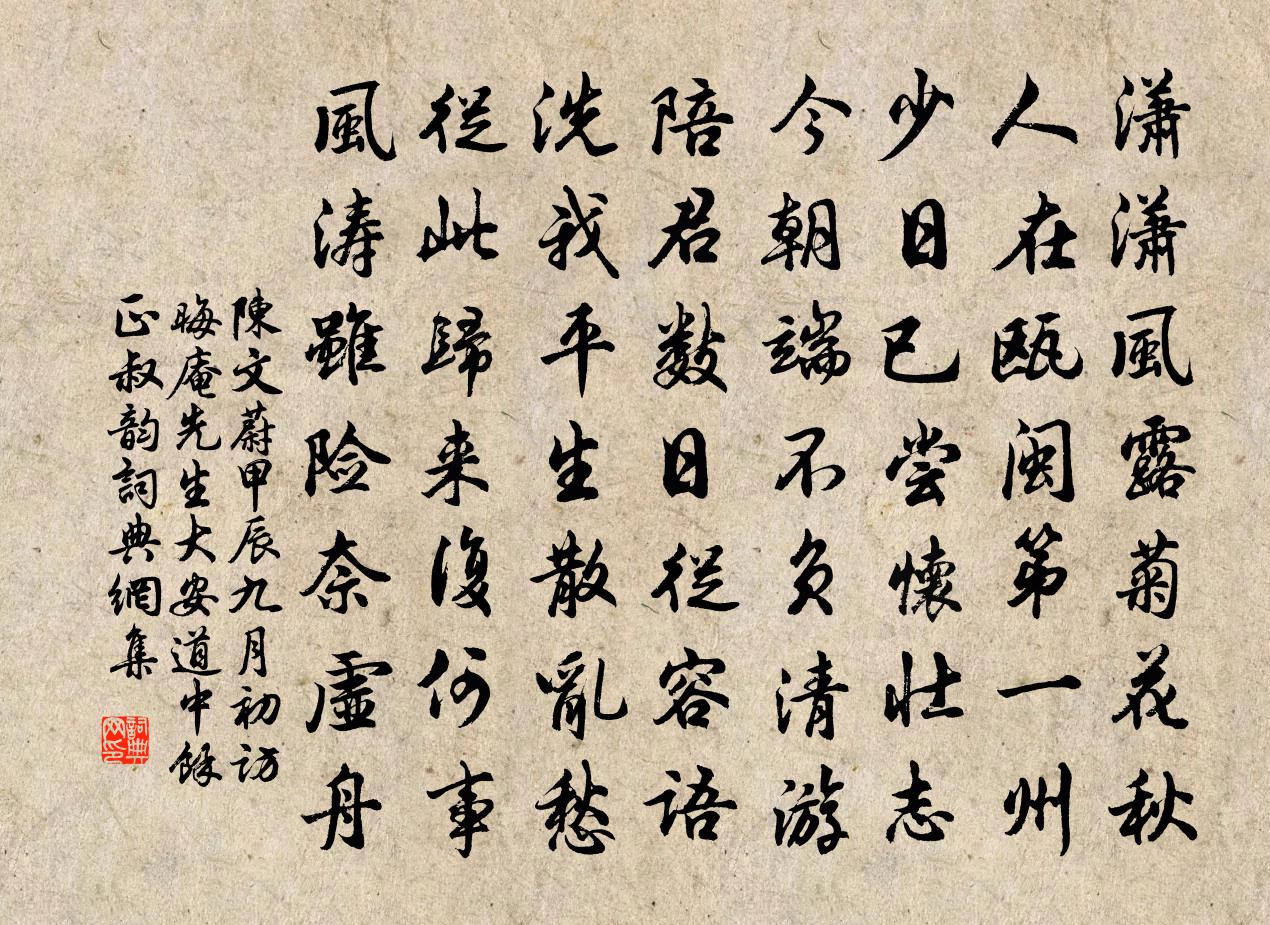 瀟瀟風露菊花秋
人在甌閩第一州
少日已尝懷壯志
今朝端不负清游
陪君數日從容語
洗我平生散亂愁
從此歸来復何事
風濤雖险奈虛舟
陳文蔚甲辰九月初访
晦庵先生大安道中餘
正叔韵詞典網集
詞典网印